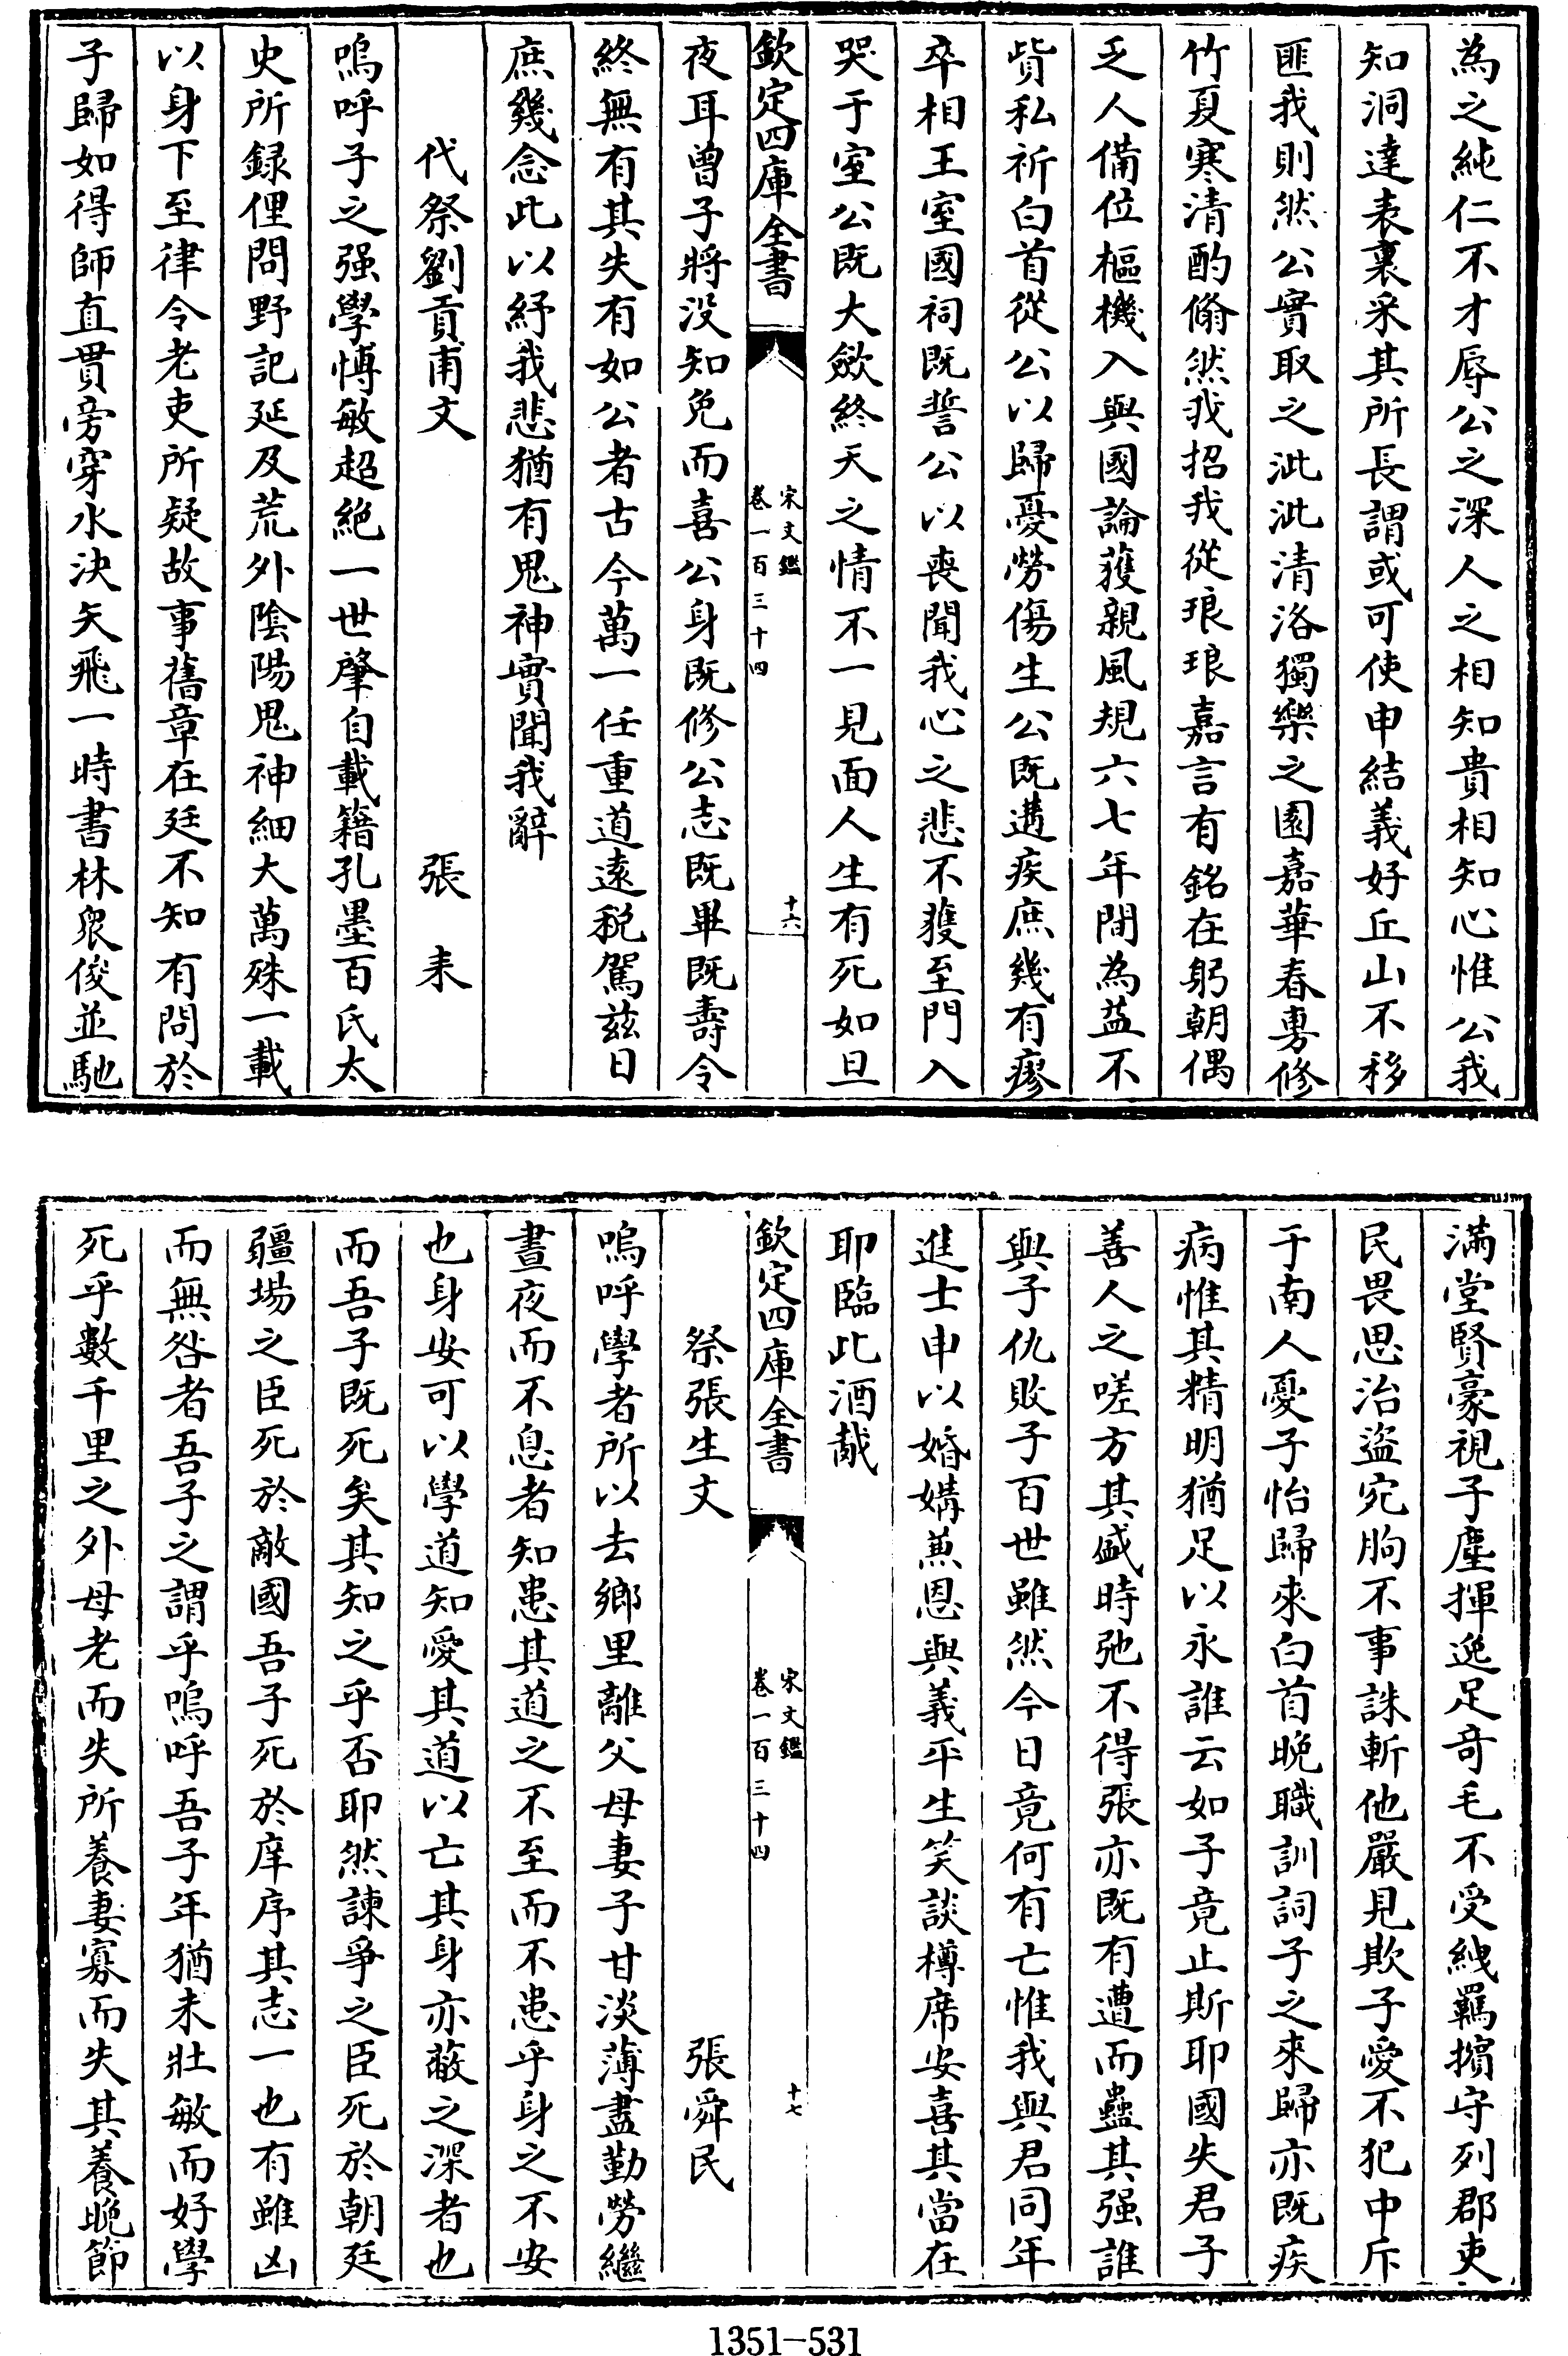 為之純仁不才辱公之深人之相知貴相知心惟公我
知洞達表裏采其所長謂或可使申結義好丘山不移
匪我則然公實取之泚泚清洛獨樂之園嘉華春旉修
竹夏寒清酌翛然我招我從琅琅嘉言有銘在躬朝偶
乏人備位樞機入與國論獲親風規六七年間為益不
貲私祈白首從公以歸憂勞傷生公既遘疾庶幾有瘳
卒相王室國祠既誓公以喪聞我心之悲不獲至門入
哭于室公既大斂終天之情不一見面人生有死如旦
欽定四庫全書
宋文鑑
卷一百三十四
十六
夜耳曾子將没知免而喜公身既修公志既畢既壽令
終無有其失有如公者古今萬一任重道遠税駕兹日
庶幾念此以紓我悲猶有鬼神實聞我辭
代祭劉貢甫文 張耒
嗚呼子之强學博敏超絶一世肇自載籍孔墨百氏太
史所録俚問野記延及荒外陰陽鬼神細大萬殊一載
以身下至律令老吏所疑故事舊章在廷不知有問於
子歸如得師直貫旁穿水決矢飛一時書林衆俊並馳
滿堂賢豪視子塵揮逸足奇毛不受紲羈擯守列郡吏
民畏思治盜宛朐不事誅斬他嚴見欺子愛不犯中斥
于南人憂子怡歸來白首晚職訓詞子之來歸亦既疾
病惟其精明猶足以永誰云如子竟止斯耶國失君子
善人之嗟方其盛時弛不得張亦既有遭而蠱其强誰
與子仇敗子百世雖然今日竟何有亡惟我與君同年
進士申以婚媾蒹恩與義平生笑談樽席安喜其當在
耶臨此酒胾
欽定四庫全書
宋文鑑
卷一百三十四
十七
祭張生文 張舜民
嗚呼學者所以去鄉里離父母妻子甘淡薄盡勤勞繼
晝夜而不息者知患其道之不至而不患乎身之不安
也身安可以學道知愛其道以亡其身亦蔽之深者也
而吾子既死矣其知之乎否耶然諫爭之臣死於朝廷
疆埸之臣死於敵國吾子死於庠序其志一也有雖凶
而無咎者吾子之謂乎嗚呼吾子年猶未壯敏而好學
死乎數千里之外母老而失所養妻寡而失其養晚節
1351-531